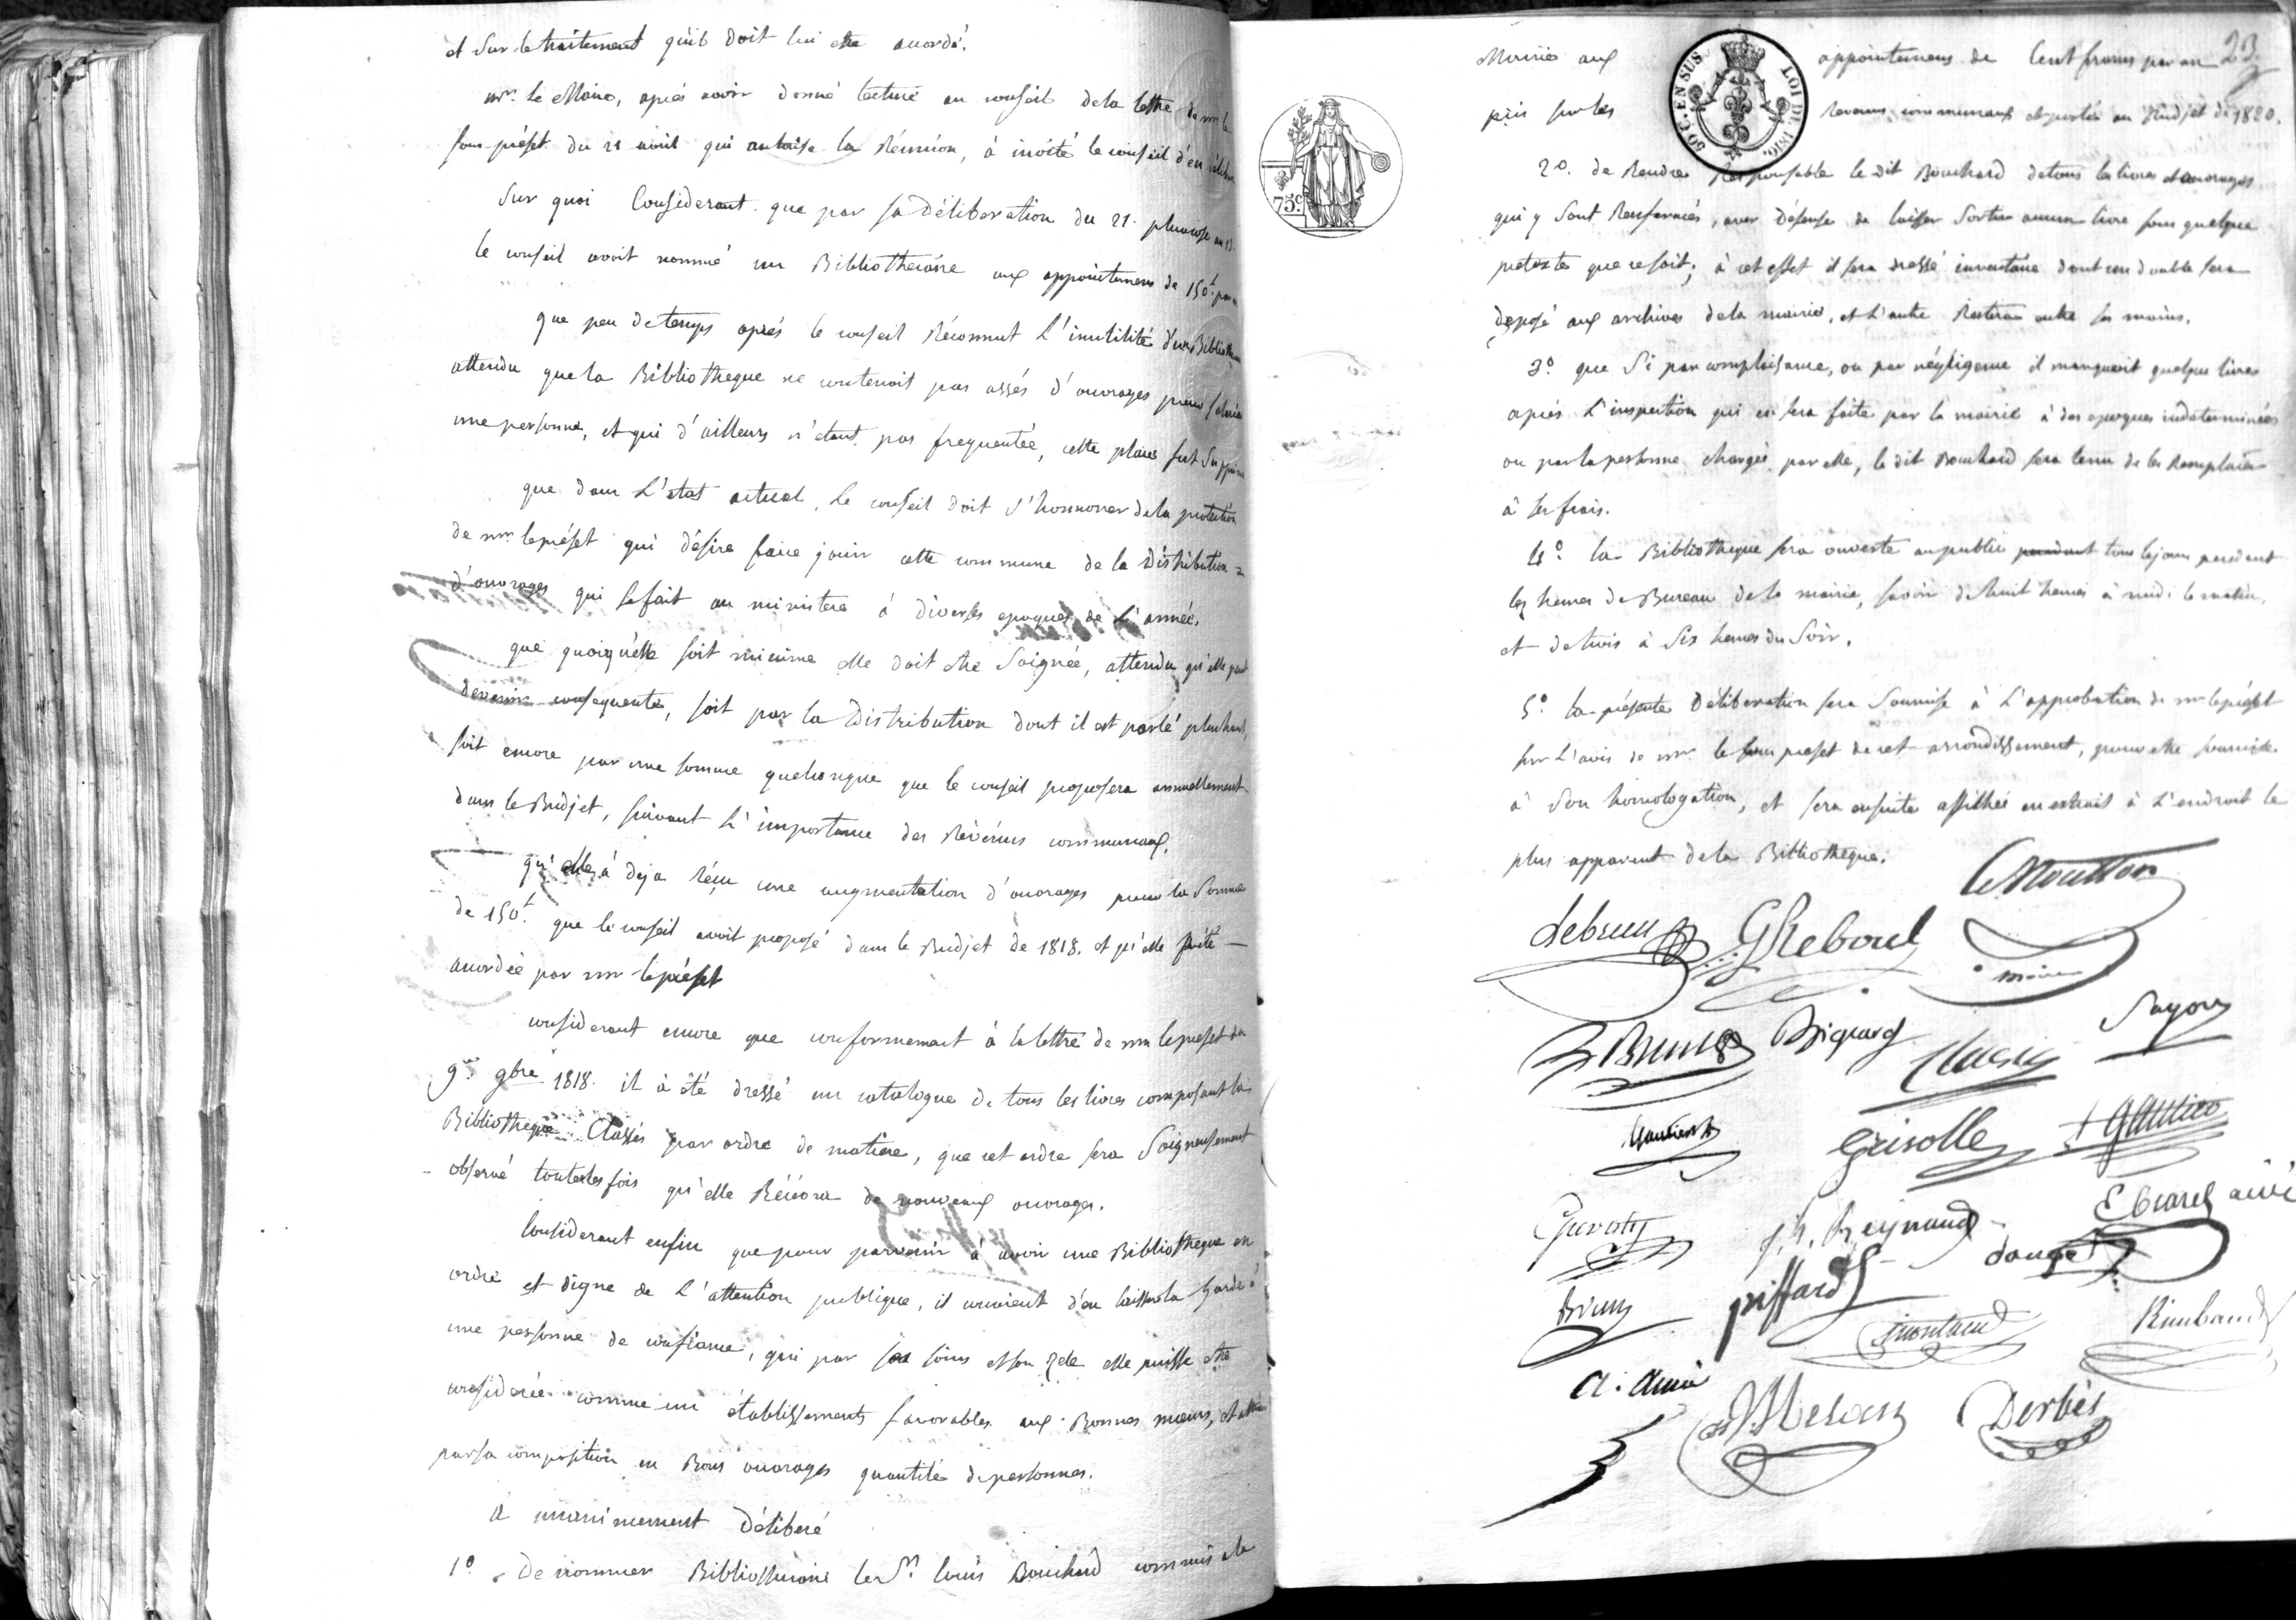 et sur le traitement qu'il doit lui etre acordé.
mr. le Maire, aprés avoir donné lecture au conseil de la lettre de mr le
sous-préfet du 21 avril qui autorise la Réunion, à invité le conseil d'en
Sur quoi Considerant que par sa déliberation du 21. pluviose an 13
le conseil avoit nommé un Bibliothecaire aux appointemens de 150t. par
que peu de temps aprés le conseil Réconnut L'inutilité d'un
attendu que la Bibliotheque ne contenoit pas assés d'ouvrages pour
une personne, et qui d'ailleurs n'étant pas frequentée, cette place fut
que dans L'etat actuel, le conseil doit s'honnorer de la protection
de mr le préfet qui désire faire jouir cette commune de la distribution =
d'ouvrages qui se fait au ministere à diverses epoques de L'année,
que quoiqu'elle soit minime elle doit etre Soignée, attendu qu'elle peut
devenir consequente, soit par la Distribution dont il est parlé plus haut,
soit encore par une somme quelconque que le conseil proposera annuellement
dans le Budjet, suivant L'importance des Révénus communaux,
qu'elle à deja Réçu une augmentation d'ouvrages pour la Somme
de 150t. que le conseil avoit proposé dans le Budjet de 1818. et qu'elle
acordée par mr le préfet
considerant encore que conformement à la lettre de mr le prefet du
9. 9bre 1818. il à été dressé un catalogue de tous les livres composant la
Bibliotheque Classés par ordre de matiere, que cet ordre sera Soigneusement
observé toutes les fois qu'elle Récévra de nouveaux ouvrages.
Considerant enfin que pour parvenir à avoir une Bibliotheque en
ordre et digne de L'attention publique, il convient d'en laisser la garde à
une personne de confiance, qui par ses soins et son zele elle puisse etre
considerée comme un établissements favorables aux Bonnes mœurs, et
par sa composition en Bons ouvrages quantité de personnes.
A unanimement Déliberé
1º. De nommer Bibliothecaire le Sr. Louis Bouchard commis à la
23
Mairie aux appointemens de Cent francs par an
pris sur les Revenus communaux et portés au Budjet de 1820.
50 C. EN SUS LOI DE 1816.
75c.
2º. de Rendre Responsable le dit Bouchard de tous les livres et ouvrages
qui y sont Renfermés, avec défense de laisser Sortir aucun livre sous quelque
pretexte que ce soit; à cet effet il sera dressé inventaire dont un double sera
déposé aux archives de la mairie, et L'autre Restera entre ses mains.
3º. que Si par complaisance, ou par négligence il manquoit quelque livres
aprés L'inspection qui en sera faite par la mairie à des epoques indeterminées
ou par la personne chargée par elle, le dit Bouchard sera tenu de les Remplacer
à ses frais.
4º. la Bibliotheque sera ouverte au public pendant tous les jours pendant
les heures de Bureau de la mairie, savoir de huit heures à midi le matin,
et de trois à Six heures du Soir.
5º. la présente Déliberation sera Soumise à L'approbation de mr le préfet
sur L'avis de mr. le sous prefet de cet arrondissement, pour etre soumise
à Son homologation, et sera ensuite affichée en extrait à L'endroit le
plus apparent de la Bibliotheque.
Lemoutton
Lebrun GReboul
maire
Brun Sayou
Grisolle Gautier
Gavoty J. h. Reynaud ainé
Brun piffard dauge
montaud Rimbaud
Derbès